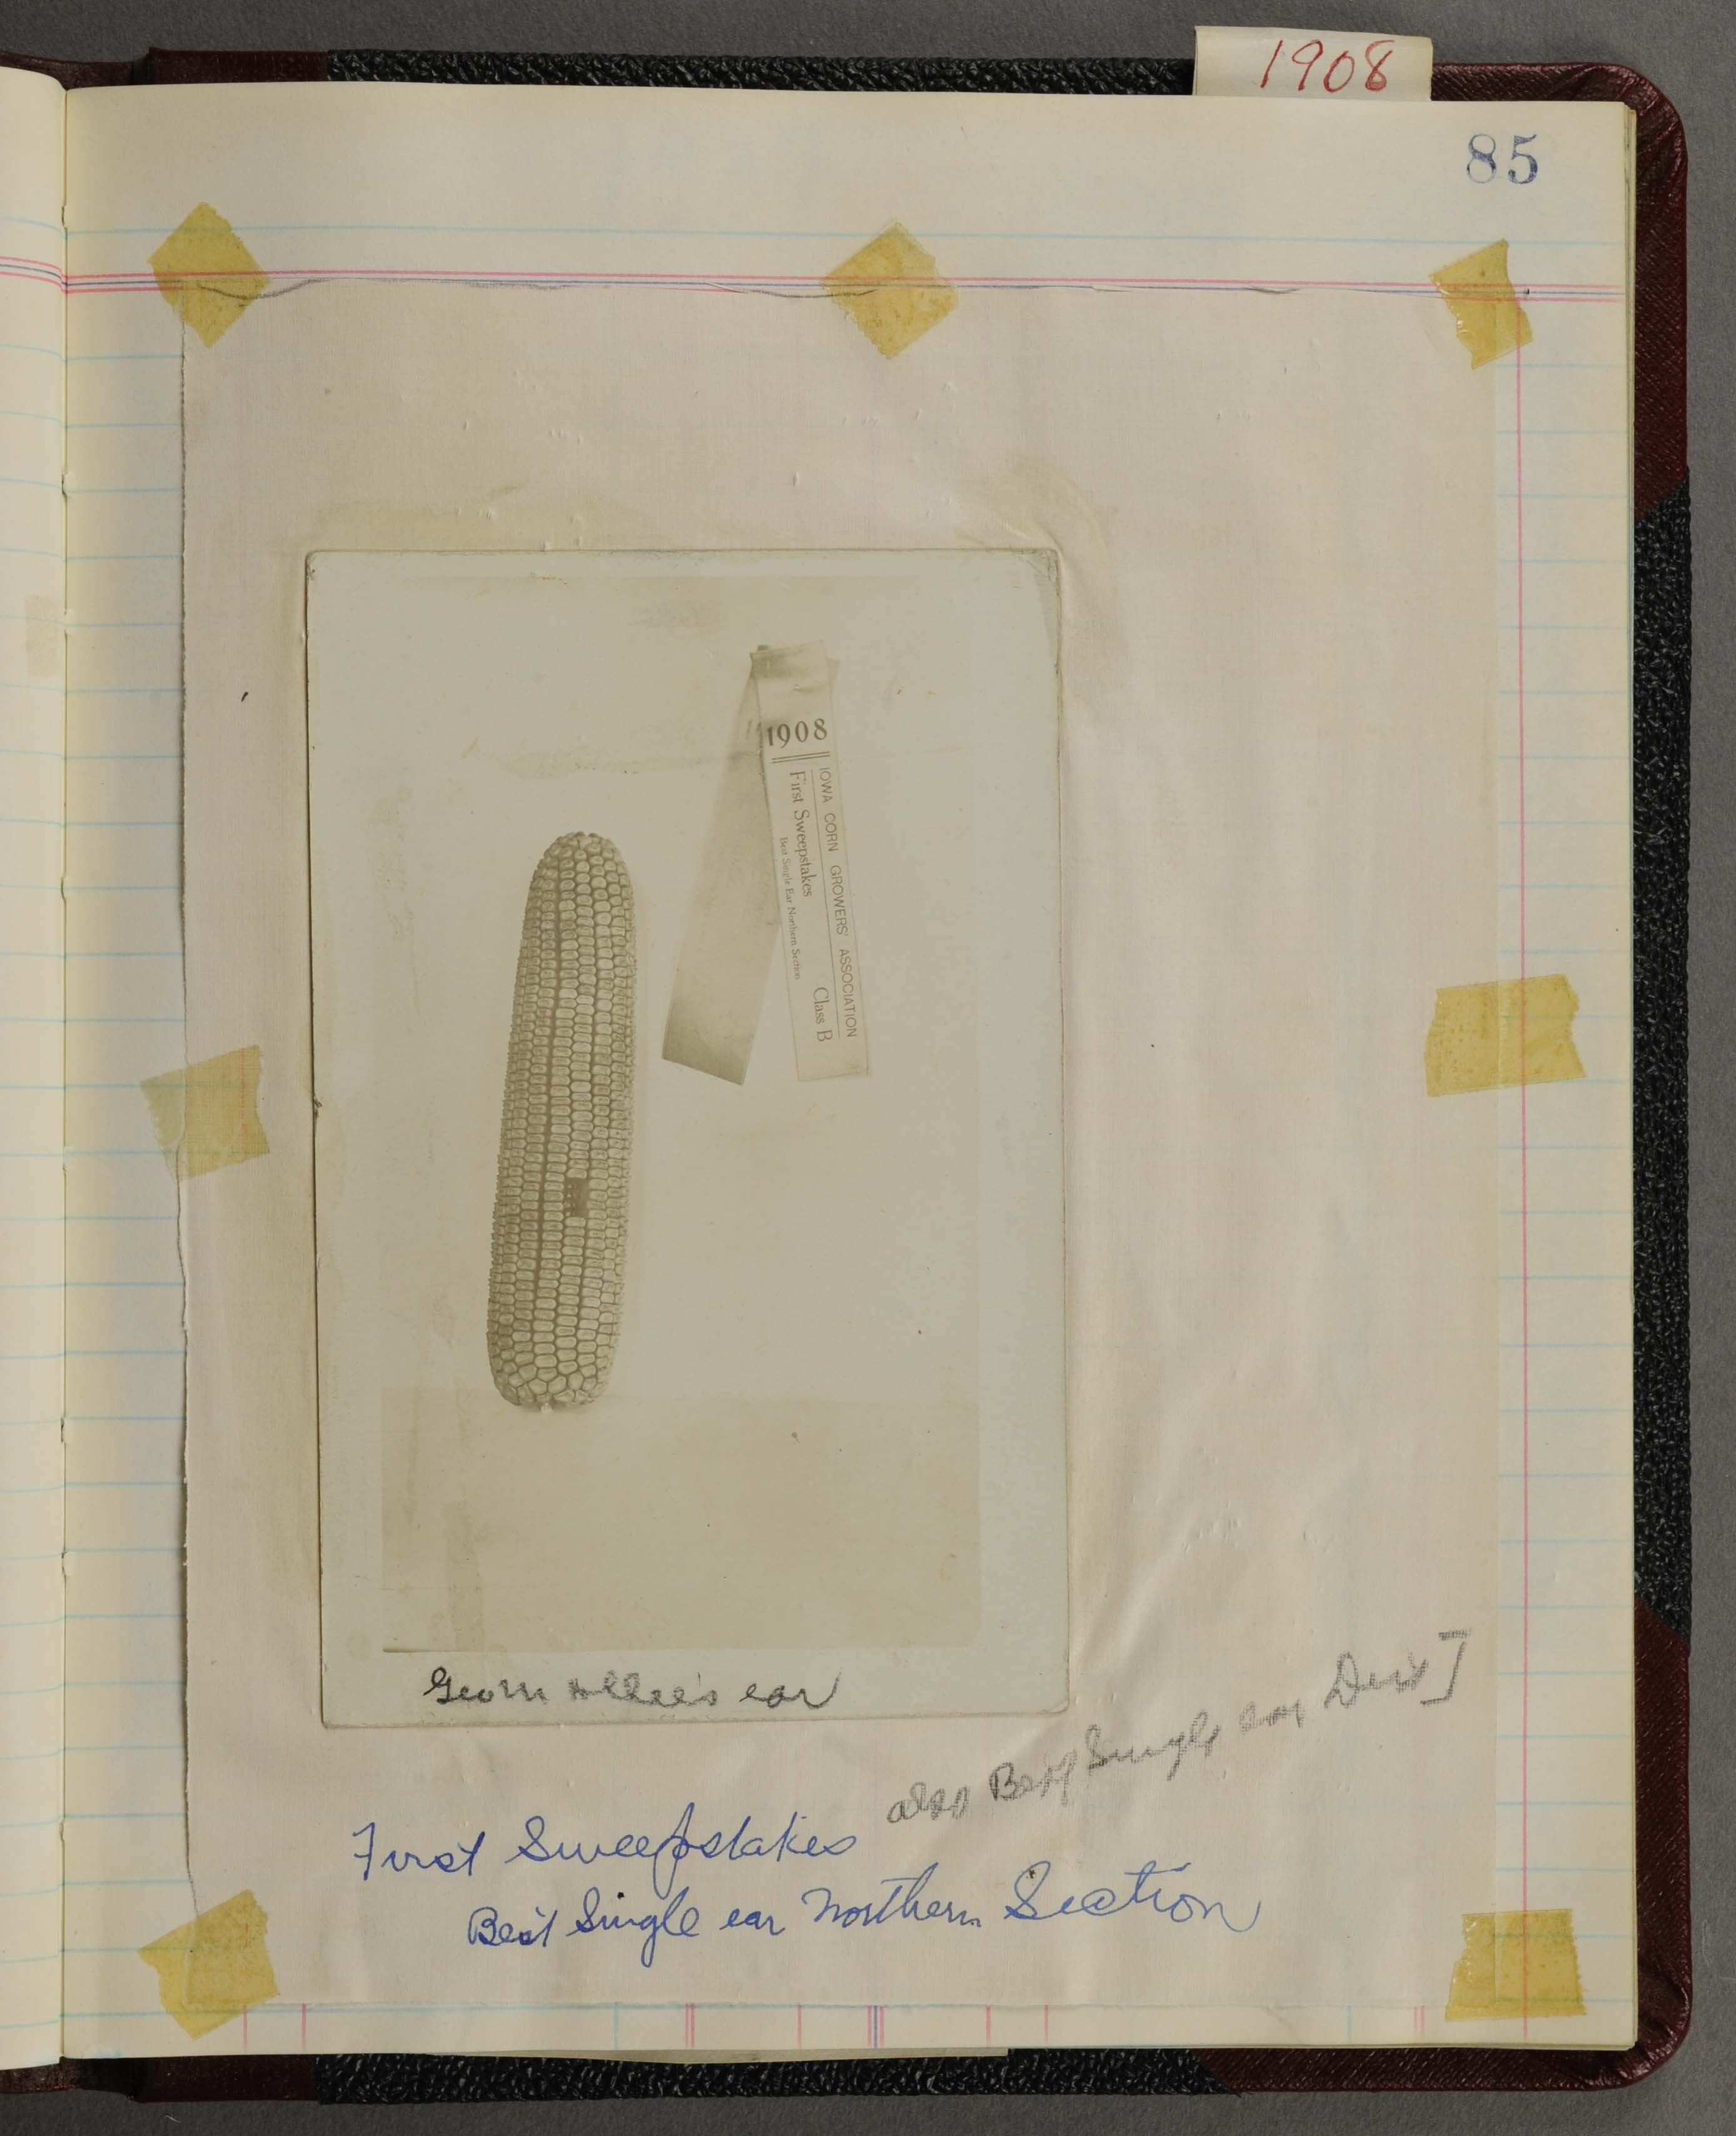 1908
85
1908
IOWA CORN GROWERS' ASSOCIATION
First Sweepstakes Class B
Best Single Ear Northern Section
ear
also Best Single ear Dist]
First Sweepstakes
Best Single ear Northern Section